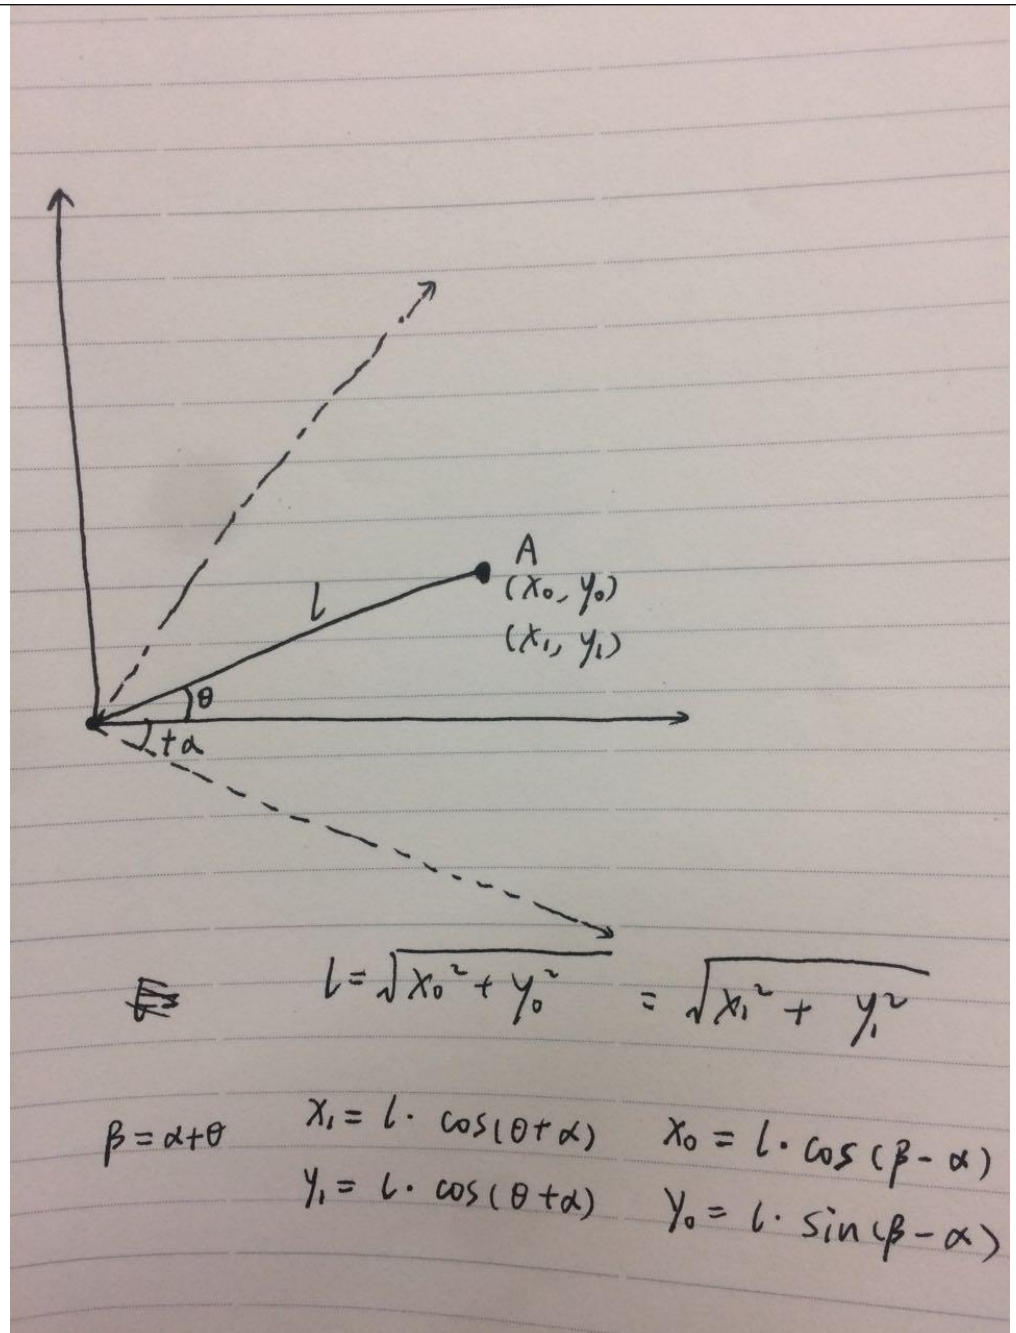 A
(x₀, y₀)
(x₁, y₁)
l
θ
+α
l = √(x₀² + y₀²) = √(x₁² + y₁²)
β = α+θ x₁ = l · cos(θ+α) x₀ = l · cos(β-α)
y₁ = l · cos(θ+α) y₀ = l · sin(β-α)